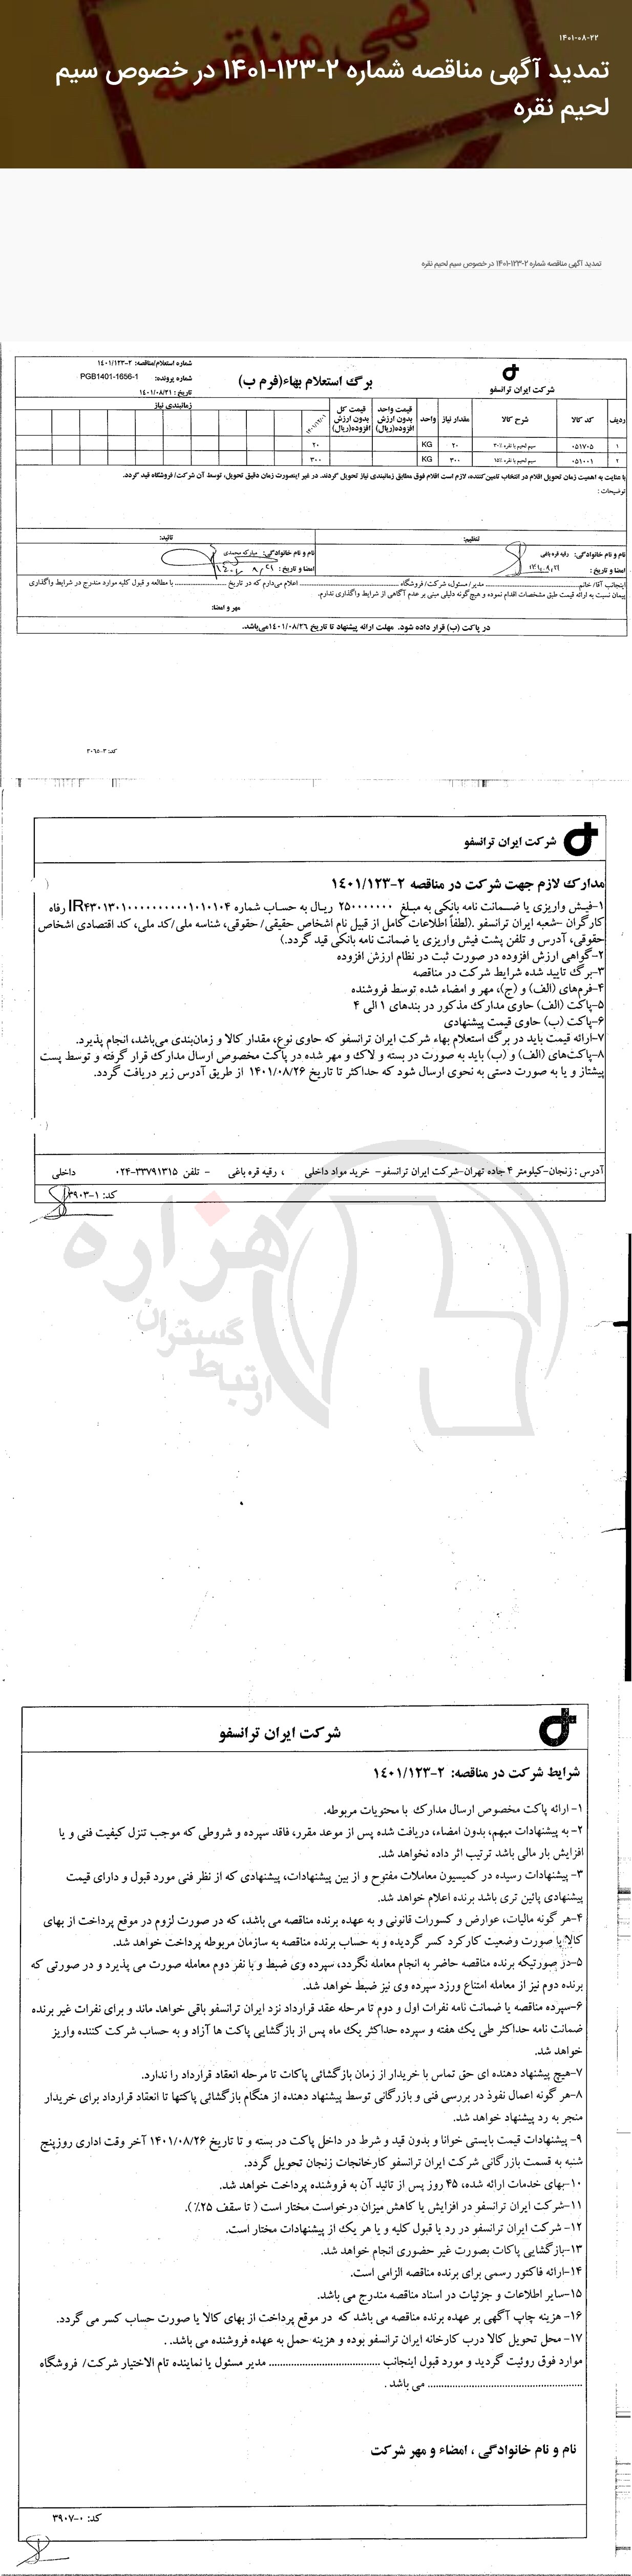 ۱۴۰۱-۰۸-۲۲
تمدید آگهی مناقصه شماره ۲-۱۲۳-۱۴۰۱ در خصوص سیم
لحیم نقره
تمدید آگهی مناقصه شماره ۲-۱۲۳-۱۴۰۱ در خصوص سیم لحیم نقره
شرکت ایران ترانسفو
برگ استعلام بهاء(فرم ب)
شماره استعلام/مناقصه: ۲-۱۴۰۱/۱۲۳
شماره پرونده: PGB1401-1656-1
تاریخ : ۱۴۰۱/۰۸/۲۱
زمانبندی نیاز
ردیف کد کالا شرح کالا مقدار نیاز واحد قیمت واحد بدون ارزش افزوده(ریال) قیمت کل بدون ارزش افزوده(ریال)
۱ ۰۵۱۷۰۵ سیم لحیم با نقره ۳۰٪ ۲۰ KG ۲۰
۲ ۰۵۱۰۰۱ سیم لحیم با نقره ۱۵٪ ۳۰۰ KG ۳۰۰
با عنایت به اهمیت زمان تحویل اقلام در انتخاب تامین‌کننده، لازم است اقلام فوق مطابق زمانبندی نیاز تحویل گردند. در غیر اینصورت زمان دقیق تحویل، توسط آن شرکت/فروشگاه قید گردد.
توضیحات :
تنظیم: تائید:
نام و نام خانوادگی: رقیه قره باغی نام و نام خانوادگی: مبارکه محمدی
امضا و تاریخ : امضا و تاریخ :
اینجانب آقا/ خانم.................... مدیر/ مسئول، شرکت/ فروشگاه .................... اعلام می‌دارم که در تاریخ .................... با مطالعه و قبول کلیه موارد مندرج در شرایط واگذاری
پیمان نسبت به ارائه قیمت طبق مشخصات اقدام نموده و هیچ‌گونه دلیلی مبنی بر عدم آگاهی از شرایط واگذاری ندارم.
مهر و امضا:
در پاکت (ب) قرار داده شود. مهلت ارائه پیشنهاد تا تاریخ ۱۴۰۱/۰۸/۲۶می‌باشد.
کد: ۳-۳۰۶۵
شرکت ایران ترانسفو
مدارک لازم جهت شرکت در مناقصه ۲-۱۴۰۱/۱۲۳
۱-فیش واریزی یا ضمانت نامه بانکی به مبلغ ۲۵۰۰۰۰۰۰۰ ریال به حساب شماره IR۴۳۰۱۳۰۱۰۰۰۰۰۰۰۰۰۰۱۰۱۰۱۰۴ رفاه
کارگران -شعبه ایران ترانسفو .(لطفاً اطلاعات کامل از قبیل نام اشخاص حقیقی/ حقوقی، شناسه ملی/کد ملی، کد اقتصادی اشخاص
حقوقی، آدرس و تلفن پشت فیش واریزی یا ضمانت نامه بانکی قید گردد.)
۲-گواهی ارزش افزوده در صورت ثبت در نظام ارزش افزوده
۳-برگ تایید شده شرایط شرکت در مناقصه
۴-فرم‌های (الف) و (ج)، مهر و امضاء شده توسط فروشنده
۵-پاکت (الف) حاوی مدارک مذکور در بندهای ۱ الی ۴
۶-پاکت (ب) حاوی قیمت پیشنهادی
۷-ارائه قیمت باید در برگ استعلام بهاء شرکت ایران ترانسفو که حاوی نوع، مقدار کالا و زمان‌بندی می‌باشد، انجام پذیرد.
۸-پاکت‌های (الف) و (ب) باید به صورت در بسته و لاک و مهر شده در پاکت مخصوص ارسال مدارک قرار گرفته و توسط پست
پیشتاز و یا به صورت دستی به نحوی ارسال شود که حداکثر تا تاریخ ۱۴۰۱/۰۸/۲۶ از طریق آدرس زیر دریافت گردد.
آدرس : زنجان-کیلومتر ۴ جاده تهران-شرکت ایران ترانسفو- خرید مواد داخلی ، رقیه قره باغی - تلفن ۳۳۷۹۱۳۱۵-۰۲۴ داخلی
کد: ۱-۳۹۰۳
هزاره
گستران
ارتباط
شرکت ایران ترانسفو
شرایط شرکت در مناقصه: ۲-۱۴۰۱/۱۲۳
۱- ارائه پاکت مخصوص ارسال مدارک با محتویات مربوطه.
۲- به پیشنهادات مبهم، بدون امضاء، دریافت شده پس از موعد مقرر، فاقد سپرده و شروطی که موجب تنزل کیفیت فنی و یا
افزایش بار مالی باشد ترتیب اثر داده نخواهد شد.
۳- پیشنهادات رسیده در کمیسیون معاملات مفتوح و از بین پیشنهادات، پیشنهادی که از نظر فنی مورد قبول و دارای قیمت
پیشنهادی پائین تری باشد برنده اعلام خواهد شد.
۴-هر گونه مالیات، عوارض و کسورات قانونی و به عهده برنده مناقصه می باشد، که در صورت لزوم در موقع پرداخت از بهای
کالا یا صورت وضعیت کارکرد کسر گردیده و به حساب برنده مناقصه به سازمان مربوطه پرداخت خواهد شد.
۵-در صورتیکه برنده مناقصه حاضر به انجام معامله نگردد، سپرده وی ضبط و با نفر دوم معامله صورت می پذیرد و در صورتی که
برنده دوم نیز از معامله امتناع ورزد سپرده وی نیز ضبط خواهد شد.
۶-سپرده مناقصه یا ضمانت نامه نفرات اول و دوم تا مرحله عقد قرارداد نزد ایران ترانسفو باقی خواهد ماند و برای نفرات غیر برنده
ضمانت نامه حداکثر طی یک هفته و سپرده حداکثر یک ماه پس از بازگشایی پاکت ها آزاد و به حساب شرکت کننده واریز
خواهد شد.
۷-هیچ پیشنهاد دهنده ای حق تماس با خریدار از زمان بازگشائی پاکات تا مرحله انعقاد قرارداد را ندارد.
۸-هر گونه اعمال نفوذ در بررسی فنی و بازرگانی توسط پیشنهاد دهنده از هنگام بازگشائی پاکتها تا انعقاد قرارداد برای خریدار
منجر به رد پیشنهاد خواهد شد.
۹- پیشنهادات قیمت بایستی خوانا و بدون قید و شرط در داخل پاکت در بسته و تا تاریخ ۱۴۰۱/۰۸/۲۶ آخر وقت اداری روزپنج
شنبه به قسمت بازرگانی شرکت ایران ترانسفو کارخانجات زنجان تحویل گردد.
۱۰-بهای خدمات ارائه شده، ۴۵ روز پس از تائید آن به فروشنده پرداخت خواهد شد.
۱۱-شرکت ایران ترانسفو در افزایش یا کاهش میزان درخواست مختار است ( تا سقف ۲۵٪).
۱۲- شرکت ایران ترانسفو در رد یا قبول کلیه و یا هر یک از پیشنهادات مختار است.
۱۳-بازگشایی پاکات بصورت غیر حضوری انجام خواهد شد.
۱۴-ارائه فاکتور رسمی برای برنده مناقصه الزامی است.
۱۵-سایر اطلاعات و جزئیات در اسناد مناقصه مندرج می باشد.
۱۶- هزینه چاپ آگهی بر عهده برنده مناقصه می باشد که در موقع پرداخت از بهای کالا یا صورت حساب کسر می گردد.
۱۷- محل تحویل کالا درب کارخانه ایران ترانسفو بوده و هزینه حمل به عهده فروشنده می باشد. .
موارد فوق روئیت گردید و مورد قبول اینجانب ........................................ مدیر مسئول یا نماینده تام الاختیار شرکت/ فروشگاه
........................................................ می باشد .
نام و نام خانوادگی ، امضاء و مهر شرکت
کد: ۰-۳۹۰۷